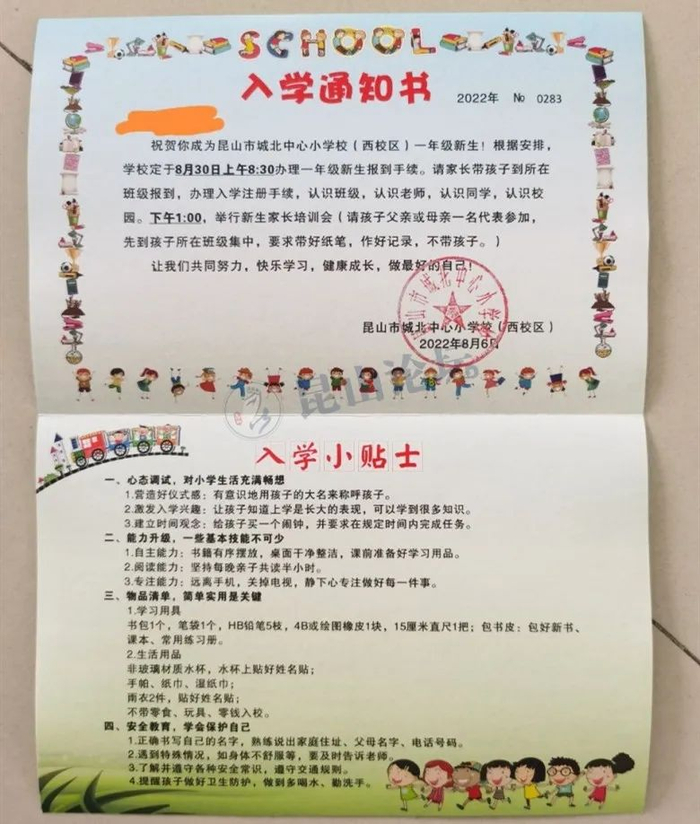 SCHOOL
入学通知书
2022年 № 0283
祝贺你成为昆山市城北中心小学校（西校区）一年级新生！根据安排，
学校定于8月30日上午8:30办理一年级新生报到手续。请家长带孩子到所在
班级报到，办理入学注册手续，认识班级，认识老师，认识同学，认识校
园。下午1:00，举行新生家长培训会（请孩子父亲或母亲一名代表参加，
先到孩子所在班级集中，要求带好纸笔，作好记录，不带孩子。）
让我们共同努力，快乐学习，健康成长，做最好的自己！
昆山市城北中心小学校
昆山市城北中心小学校（西校区）
2022年8月6日
昆山论坛
入学小贴士
一、心态调试，对小学生活充满畅想
1.营造好仪式感：有意识地用孩子的大名来称呼孩子。
2.激发入学兴趣：让孩子知道上学是长大的表现，可以学到很多知识。
3.建立时间观念：给孩子买一个闹钟，并要求在规定时间内完成任务。
二、能力升级，一些基本技能不可少
1.自主能力：书籍有序摆放，桌面干净整洁，课前准备好学习用品。
2.阅读能力：坚持每晚亲子共读半小时。
3.专注能力：远离手机，关掉电视，静下心专注做好每一件事。
三、物品清单，简单实用是关键
1.学习用具
书包1个，笔袋1个，HB铅笔5枝，4B或绘图橡皮1块，15厘米直尺1把；包书皮：包好新书、
课本、常用练习册。
2.生活用品
非玻璃材质水杯，水杯上贴好姓名贴；
手帕、纸巾、湿纸巾；
雨衣2件，贴好姓名贴；
不带零食、玩具、零钱入校。
四、安全教育，学会保护自己
1.正确书写自己的名字，熟练说出家庭住址、父母名字、电话号码。
2.遇到特殊情况，如身体不舒服等，要及时告诉老师。
3.了解并遵守各种安全常识，遵守交通规则。
4.提醒孩子做好卫生防护，做到多喝水、勤洗手。